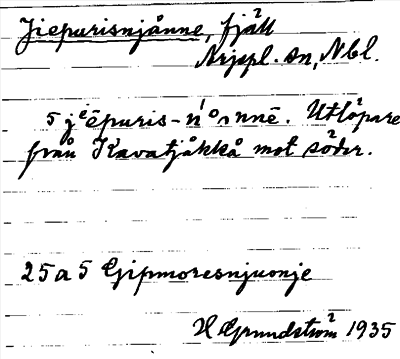 Jiepurisnjånne, fjäll
Arjepl. sn, Nbl.
5 jēpuris-n'ånnē. Utlöpare
från Kavatjåkkå mot söder.
25 a 5 Gipmoresnjuonje
H Grundström 1935